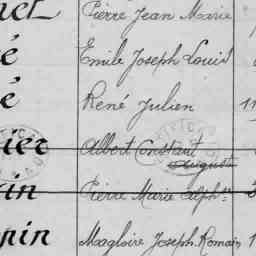 net Pierre Jean Marie
é Emile Joseph Louis
é René Julien 11
ier Albert Constant
Auguste
in Pierre Marie Alph.se
pin Magloire Joseph Romain 1